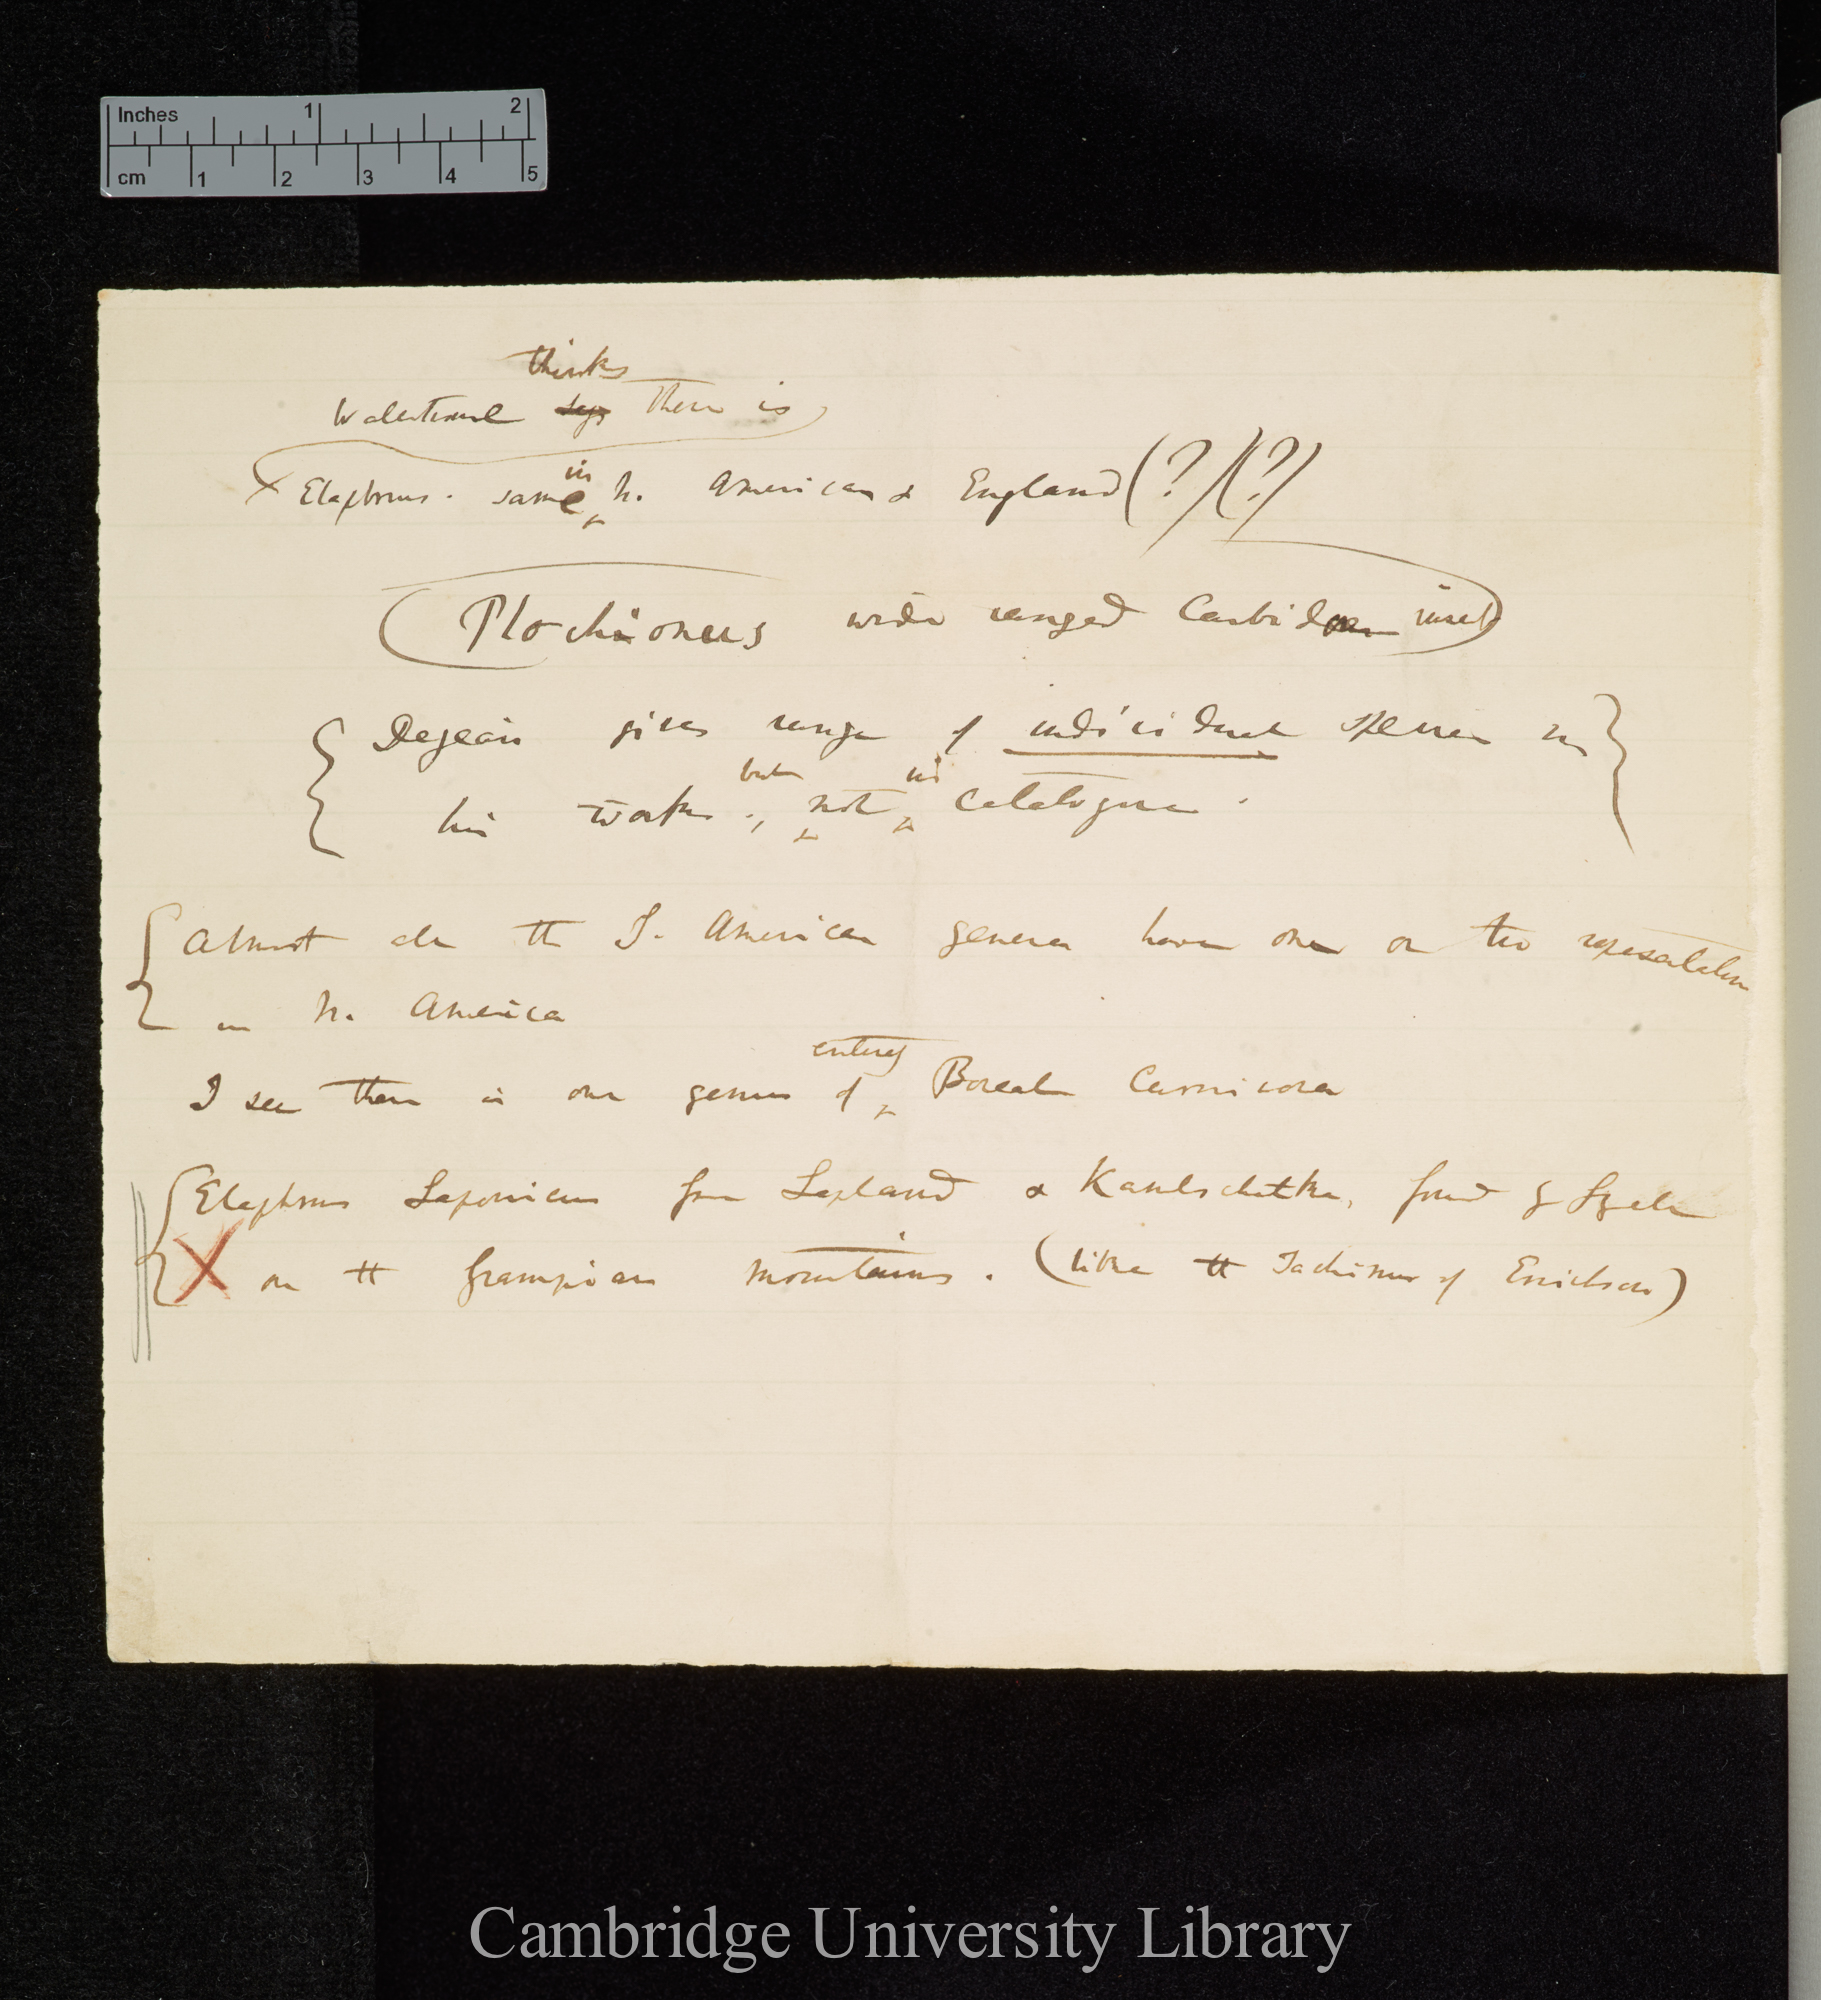 Inches 1 2
cm 1 2 3 4 5
thinks
Waterhouse says there is
X Elaphrus. same in N. America & England (?)(?)
(Plochionus wide ranged Carbid insect)
{ Dejean gives range of individual species in }
but in
his works., not catalogue.
{ Almost all the S. American genera have one or two representatives
in N. America
entirely
I see there is one genus of Boreal Carnivora
{ Elaphrus Laponicus from Lapland & Kamtschatka, found by Lyell
X on the Grampian mountains. (like the Tachinus of Erichson)
Cambridge University Library